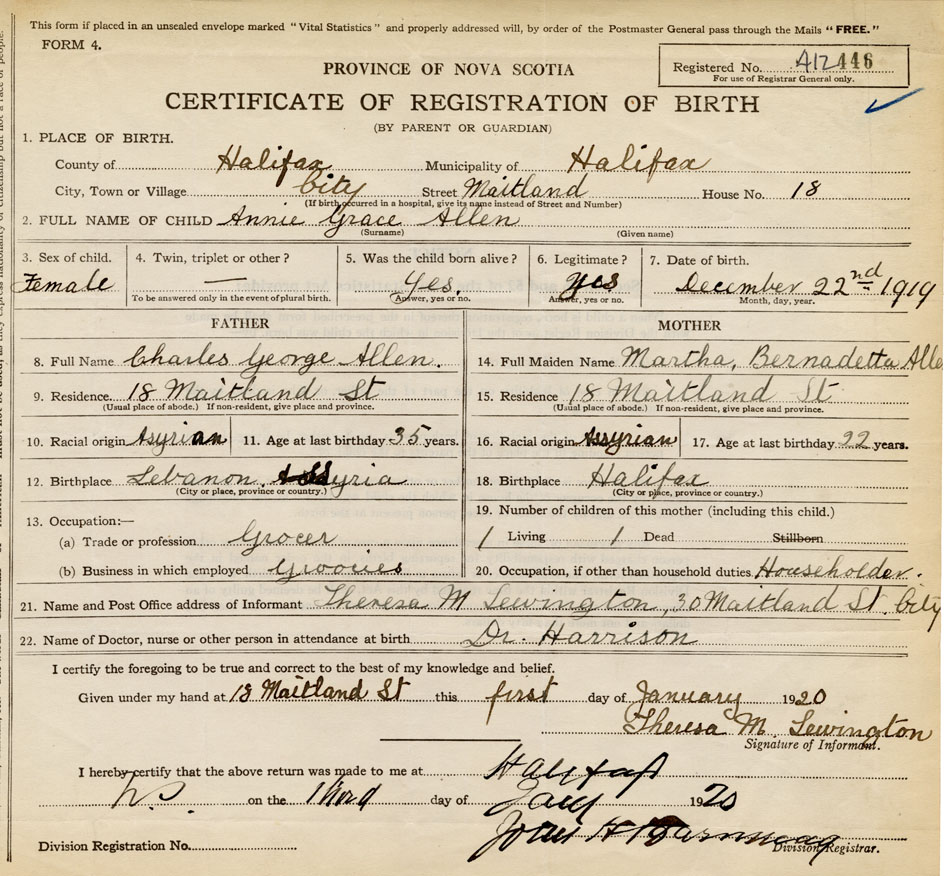 This form if placed in an unsealed envelope marked "Vital Statistics" and properly addressed will, by order of the Postmaster General pass through the Mails "FREE."
FORM 4.
Registered No. A12446
For use of Registrar General only.
PROVINCE OF NOVA SCOTIA
CERTIFICATE OF REGISTRATION OF BIRTH
(BY PARENT OR GUARDIAN)
1. PLACE OF BIRTH.
County of Halifax Municipality of Halifax
City, Town or Village City Street Maitland House No. 18
(If birth occurred in a hospital, give its name instead of Street and Number)
2. FULL NAME OF CHILD Annie Grace Allen
(Surname) (Given name)
3. Sex of child. 4. Twin, triplet or other? 5. Was the child born alive? 6. Legitimate? 7. Date of birth.
Female — Yes. yes December 22nd 1919
To be answered only in the event of plural birth. Answer, yes or no. Answer, yes or no. Month, day, year.
FATHER MOTHER
8. Full Name Charles George Allen. 14. Full Maiden Name Martha, Bernadetta Alle
9. Residence. 18 Maitland St 15. Residence 18 Maitland St
(Usual place of abode.) If non-resident, give place and province. (Usual place of abode.) If non-resident, give place and province.
10. Racial origin Assyrian 11. Age at last birthday 35 years. 16. Racial origin Assyrian 17. Age at last birthday 22 years.
12. Birthplace Lebanon, Assyria 18. Birthplace Halifax
(City or place, province or country.) (City or place, province or country.)
13. Occupation:— 19. Number of children of this mother (including this child.)
(a) Trade or profession Grocer 1 Living 1 Dead Stillborn
(b) Business in which employed 20. Occupation, if other than household duties Householder.
21. Name and Post Office address of Informant Theresa M Lewington, 30 Maitland St. City
22. Name of Doctor, nurse or other person in attendance at birth Dr. Harrison
I certify the foregoing to be true and correct to the best of my knowledge and belief.
Given under my hand at 18 Maitland St this first day of January 1920
Theresa M. Lewington
Signature of Informant.
I hereby certify that the above return was made to me at Halifax
N.S. on the third day of Jany 1920
John A
Division Registration No. Division Registrar.